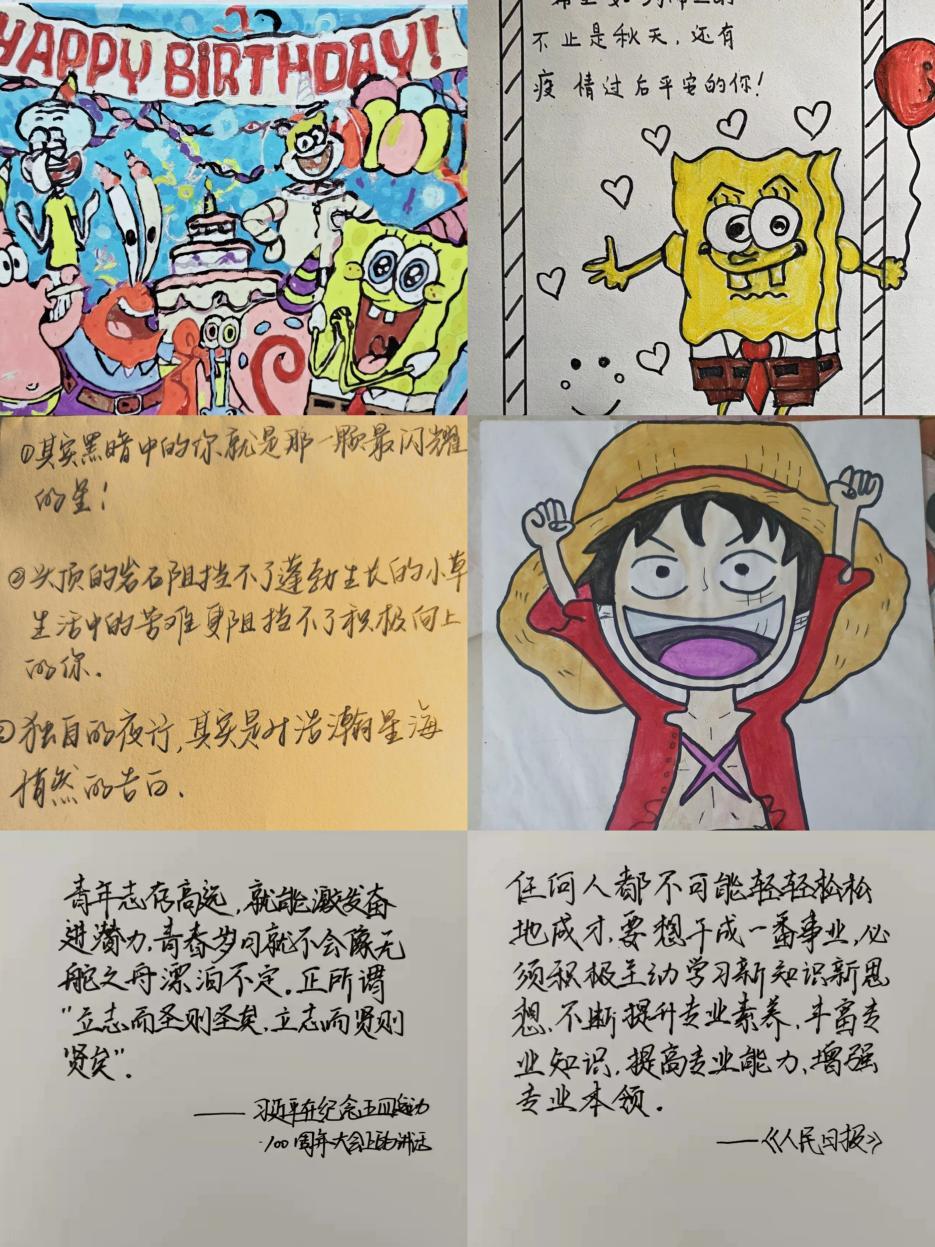 HAPPY BIRTHDAY!
不止是秋天,还有
疫情过后平安的你!
①其实黑暗中的你就是那一颗最闪耀
的星!
②头顶的岩石阻挡不了蓬勃生长的小草
生活中的苦难更阻挡不了积极向上
的你.
独自的夜行,其实是对浩瀚星海
悄然的告白.
青年志存高远,就能激发奋
进潜力,青春岁月就不会像无
舵之舟漂泊不定.正所谓
"立志而圣则圣矣,立志而贤则
贤矣".
——习近平在纪念五四运动
100周年大会上的讲话
任何人都不可能轻轻松松
地成才,要想干成一番事业,必
须积极主动学习新知识新思
想,不断提升专业素养,丰富专
业知识,提高专业能力、增强
专业本领.
——《人民日报》